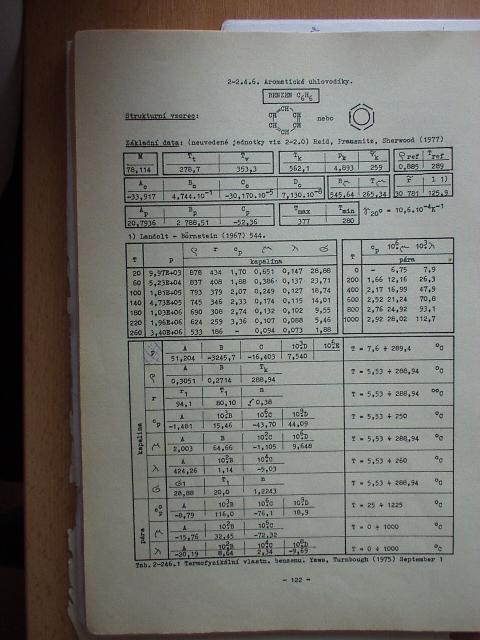 2-2.4.6. Aromatické uhlovodíky.
BENZEN C6H6
Strukturní vzorec: CH CH CH CH CH CH nebo
Základní data: (neuvedené jednotky viz 2-2.0) Reid, Prausnitz, Sherwood (1977)
M Tt Tv Tk pk Vk ρref Tref
78,114 278,7 353,3 562,1 4,893 259 0,885 289
Ao Bo Co Do 1)
-33,917 4,744.10-1 -30,170.10-5 7,130.10-8 545,64 265,34 30 781 125,9
Ap Bp Cp Tmax Tmin
20,7936 2 788,51 -52,36 377 280 γ20° = 10,6.10-4K-1
1) Landolt - Börnstein (1967) 544.
T p ρ r cp μ λ σ
kapalina
20 9,97E+03 878 434 1,70 0,651 0,147 28,88
60 5,23E+04 837 408 1,88 0,386 0,137 23,71
100 1,81E+05 793 379 2,07 0,249 0,127 18,74
140 4,73E+05 745 346 2,33 0,174 0,115 14,01
180 1,03E+06 690 308 2,74 0,132 0,102 9,55
220 1,96E+06 624 259 3,36 0,107 0,088 5,46
260 3,40E+06 533 186 - 0,094 0,073 1,88
T cp 106μ 103λ
pára
0 - 6,75 7,9
200 1,66 12,16 26,3
400 2,17 16,99 47,9
600 2,52 21,24 70,8
800 2,76 24,92 93,1
1000 2,92 28,02 112,7
kapalina
p A B C 103D 106E
51,204 -3245,7 -16,403 7,540 T = 7,6 ÷ 289,4 °C
ρ A B Tk
0,3051 0,2714 288,94 T = 5,53 ÷ 288,94 °C
r r1 T1 n
94,1 80,10 0,38 T = 5,53 ÷ 288,94 °C
cp A 102B 105C 108D
-1,481 15,46 -43,70 44,09 T = 5,53 ÷ 250 °C
μ A B 102C 106D
2,003 64,66 -1,105 9,648 T = 5,53 ÷ 288,94 °C
λ A 102B 104C
424,26 1,14 -9,03 T = 5,53 ÷ 260 °C
σ σ1 T1 n
28,88 20,0 1,2243 T = 5,53 ÷ 288,94 °C
pára
A
-8,79 116,0 -76,1 18,9 T = 25 ÷ 1225 °C
μ A
-15,76 32,45 -72,32 T = 0 ÷ 1000 °C
λ A
-20,19 8,64 2,34 -9,69 T = 0 ÷ 1000 °C
Tab. 2-246.1 Termofyzikální vlastn. benzenu. Yaws, Turnbough (1975) September 1
- 122 -